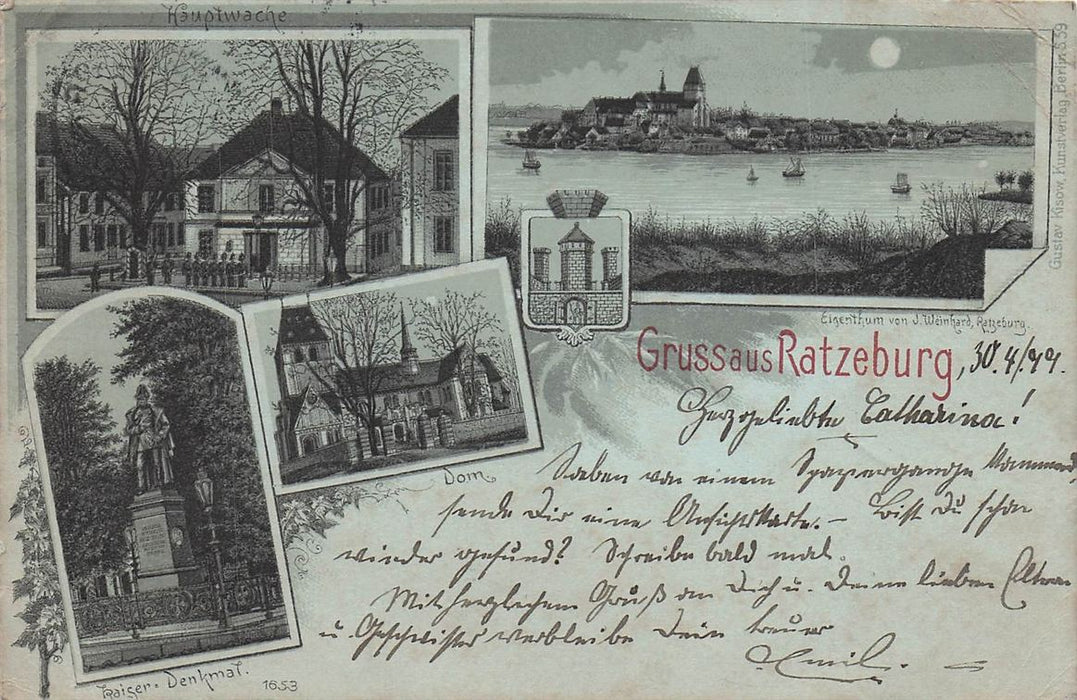 Hauptwache.
Gustav Kisow, Kunstverlag, Berlin S.59
Eigenthum von J. Weinhard, Ratzeburg.
Gruss aus Ratzeburg, 30.4/99.
Herzgeliebte Catharina!
Soeben von einem Spaziergange kommend,
sende Dir eine Ansichtskarte. – Bist Du schon
wieder gesund? Schreibe bald mal.
Mit herzlichem Gruß an Dich u. Deine lieben Eltern
u. Geschwister verbleibe Dein treuer
Emil.
Dom.
Kaiser-Denkmal.
1653